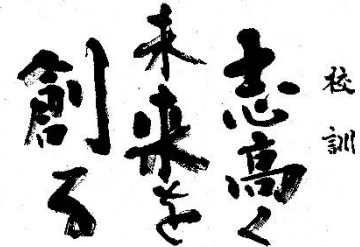 校訓
志高く
未来を
創る